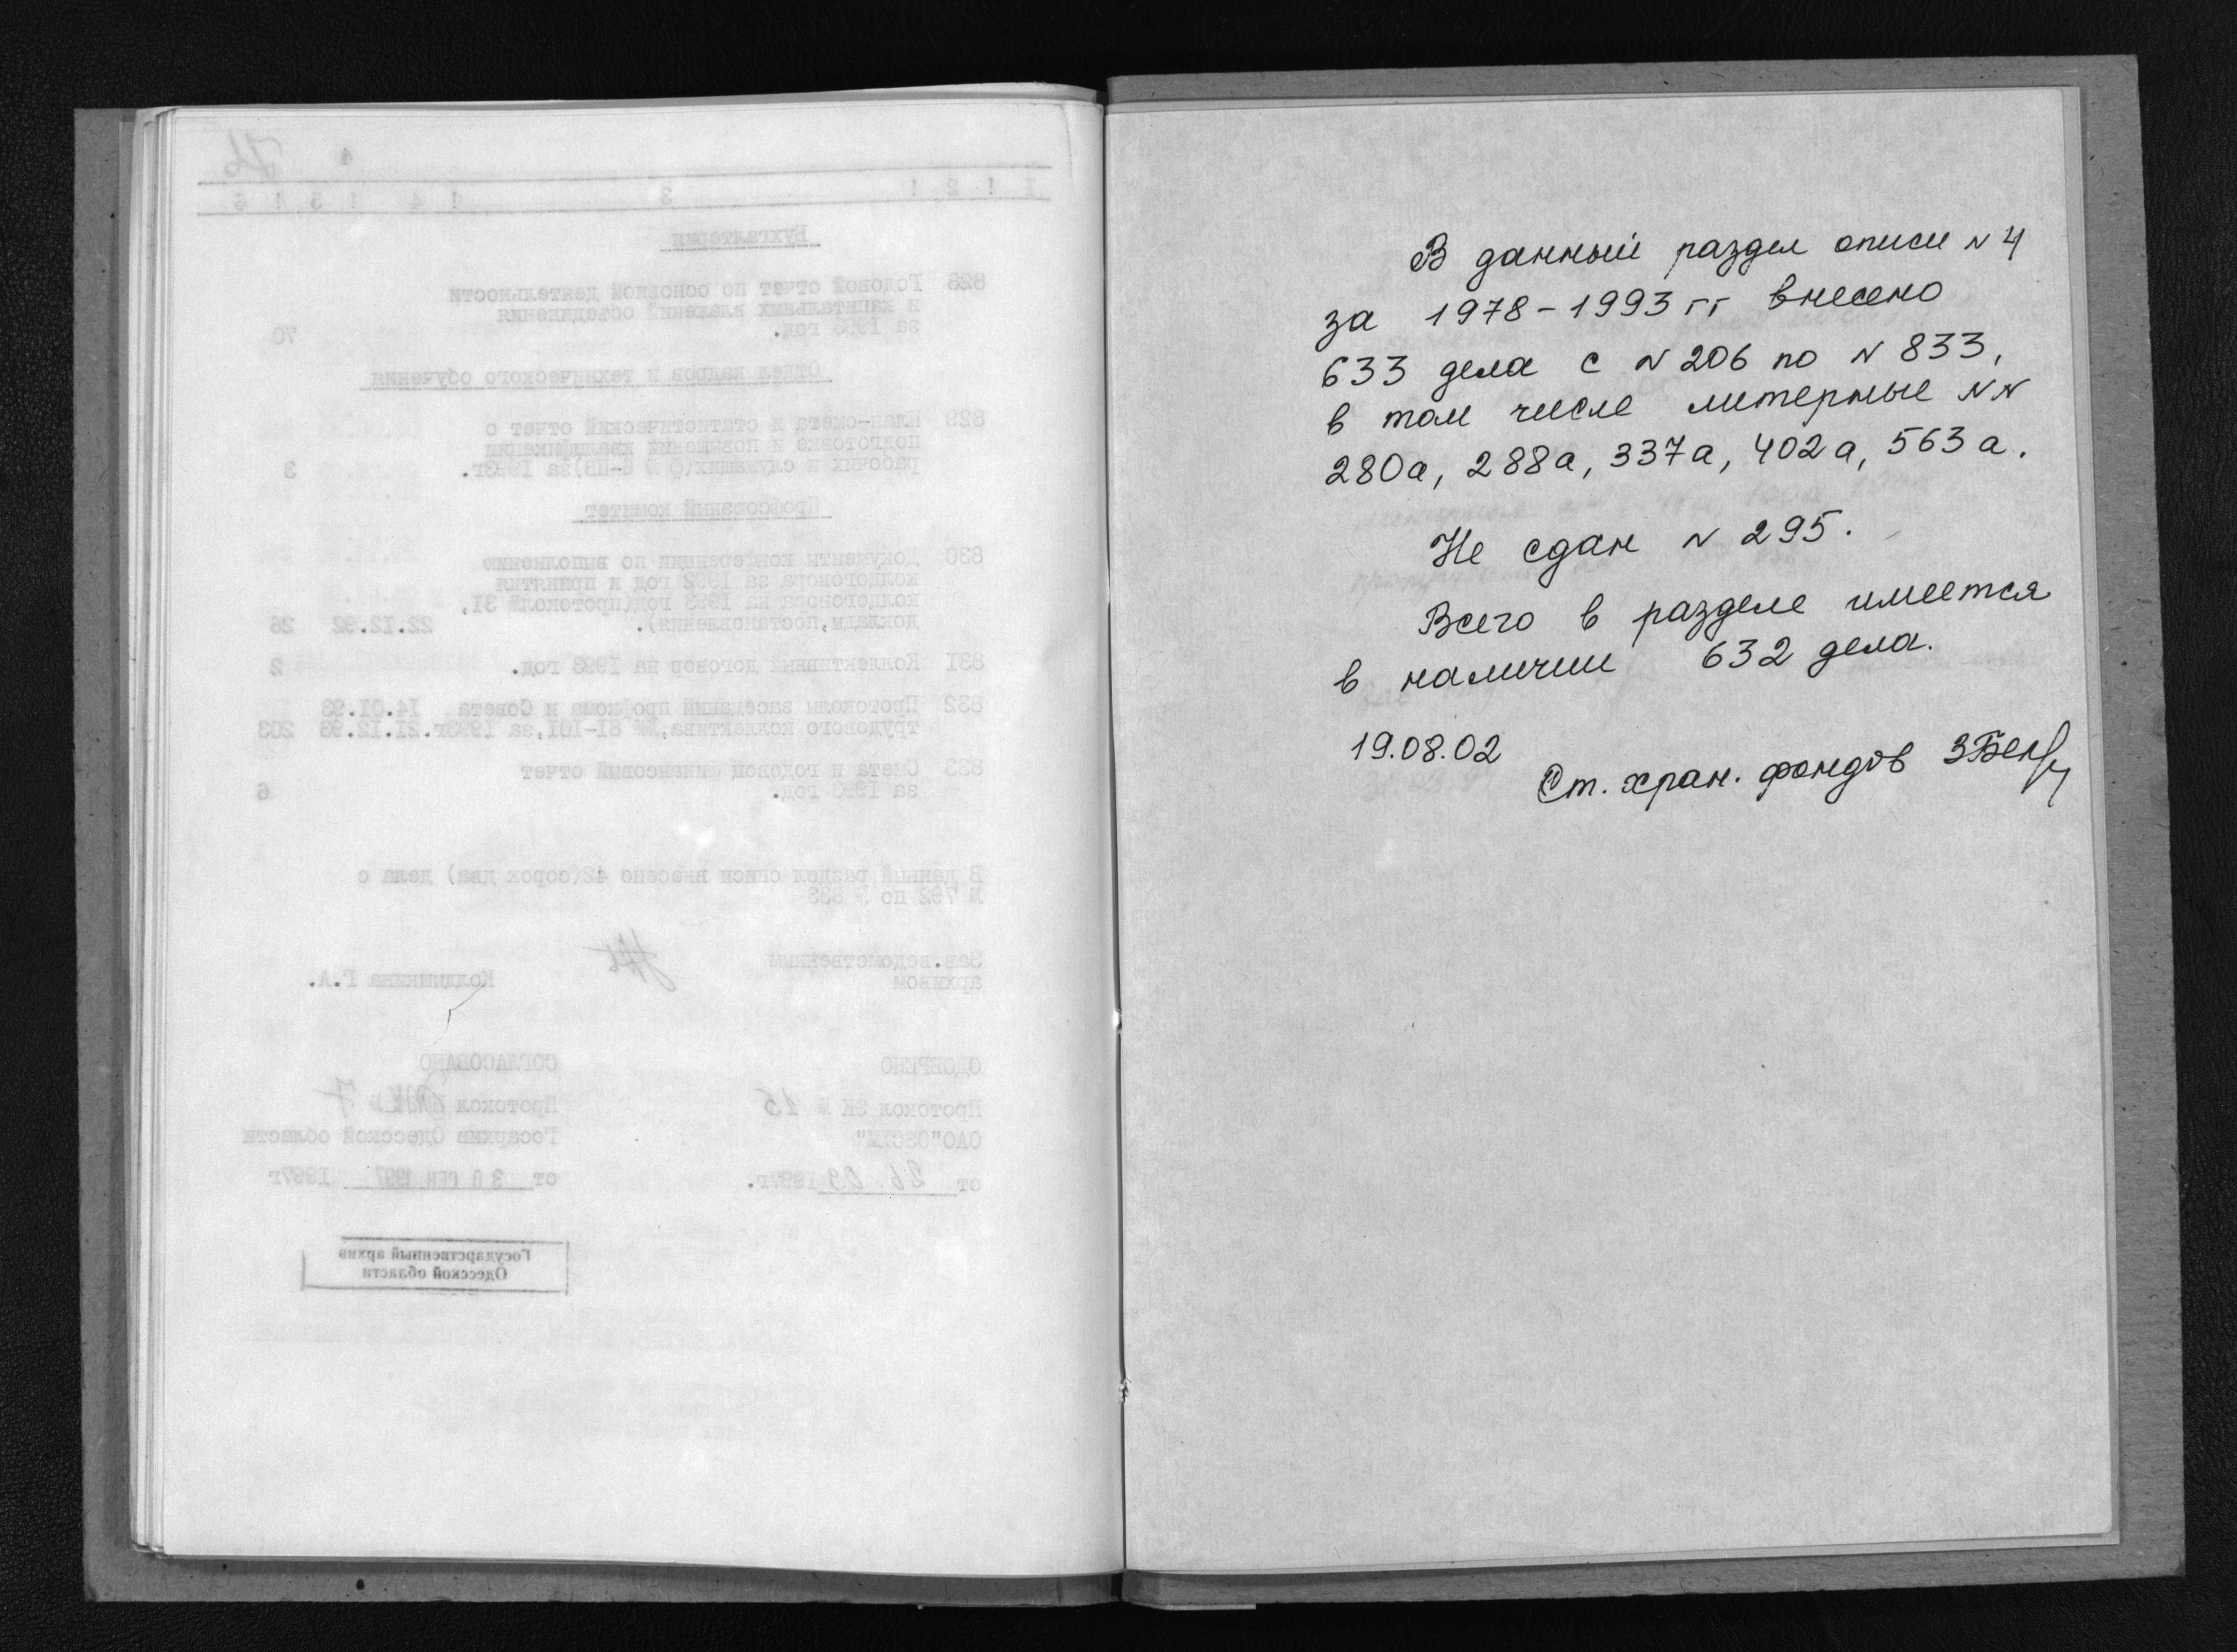 76
4
1 ! 2 ! 3 ! 4 ! 5 ! 6
Бухгалтерия
828 Годовой отчет по основной деятельности
и капитальных вложений объединения
за 1993 год. 70
Отдел кадров и технического обучения
829 План-смета и статистический отчет о
подготовке и повышении квалификации
рабочих и служащих(ф № 6-ПВ)за 1993г. 3
Профсоюзный комитет
830 Документы конференции по выполнению
колдоговора за 1992 год и принятия
колдоговора на 1993 год(протокол№ 31,
доклады,постановления). 22.12.92 26
831 Коллективный договор на 1993 год. 2
832 Протоколы заседаний профкома и Совета 14.01.93
трудового коллектива,№ 81-101,за 1993г.21.12.93 203
833 Смета и годовой финансовый отчет
за 1993 год. 6
В данный раздел описи внесено 42(сорок два) дела с
№ 792 по № 833
Зав.ведомственным
архивом Г.А.
ОДОБРЕНО СОГЛАСОВАНО
Протокол ЭК № 15 Протокол № 7
ОАО Госархив Одесской области
от 26.09 1997г. от 30 СЕН 1997 1997г
Государственный архив
Одесской области
В данный раздел описи N 4
за 1978-1993 гг внесено
633 дела с N 206 по N 833,
в том числе литерные NN
280а, 288а, 337а, 402а, 563а.
Не сдан N 295.
Всего в разделе имеется
в наличии 632 дела.
19.08.02
Ст. хран. фондов